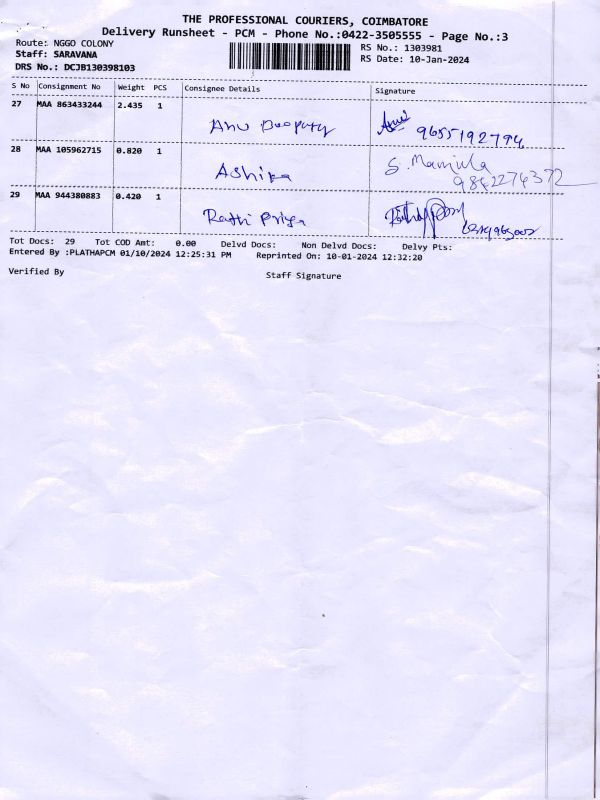 THE PROFESSIONAL COURIERS, COIMBATORE
Delivery Runsheet - PCM - Phone No.:0422-3505555 - Page No.:3
Route: NGGO COLONY
Staff: SARAVANA
DRS No.: DCJB130398103
RS No.: 1303981
RS Date: 10-Jan-2024
S No Consignment No Weight PCS Consignee Details Signature
27 MAA 863433244 2.435 1
Anu 9655192794
28 MAA 105962715 0.820 1
Ashika S. Manjula
9842274372
29 MAA 944380883 0.420 1
Rathi Priya
Tot Docs: 29 Tot COD Amt: 0.00 Delvd Docs: Non Delvd Docs: Delvy Pts:
Entered By :PLATHAPCM 01/10/2024 12:25:31 PM Reprinted On: 10-01-2024 12:32:20
Verified By Staff Signature